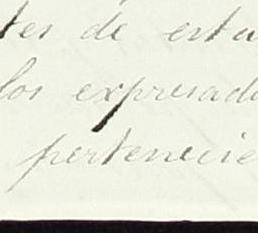 tes de estu
los expresad
pertenecie